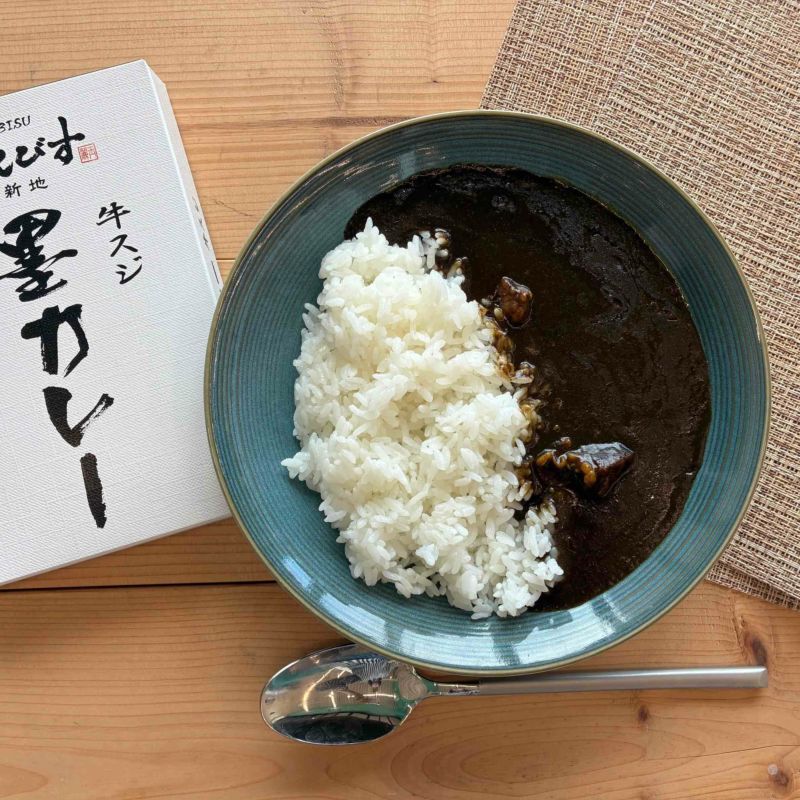 BISU
えびす
新地
牛スジ
墨カレー